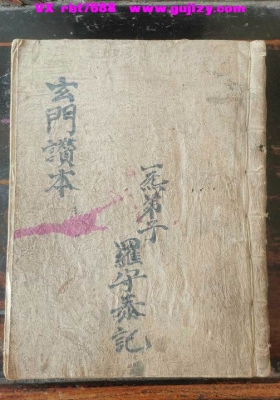 VX rbt7688 www.gujizy.com
玄門讚本
弟子
羅守泰記